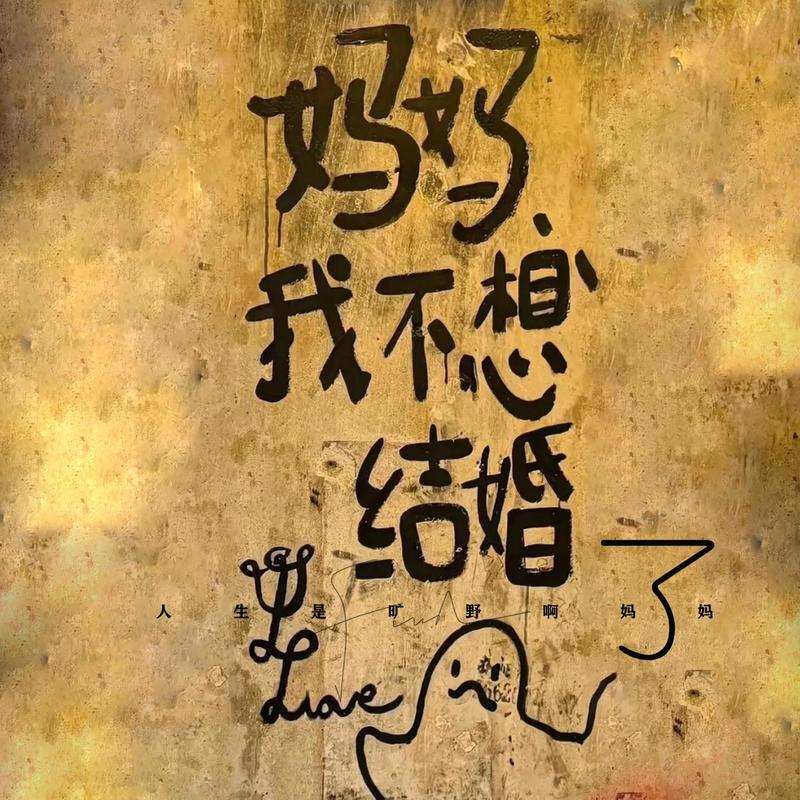 妈妈
我不想
结婚了
人生是旷野啊妈妈